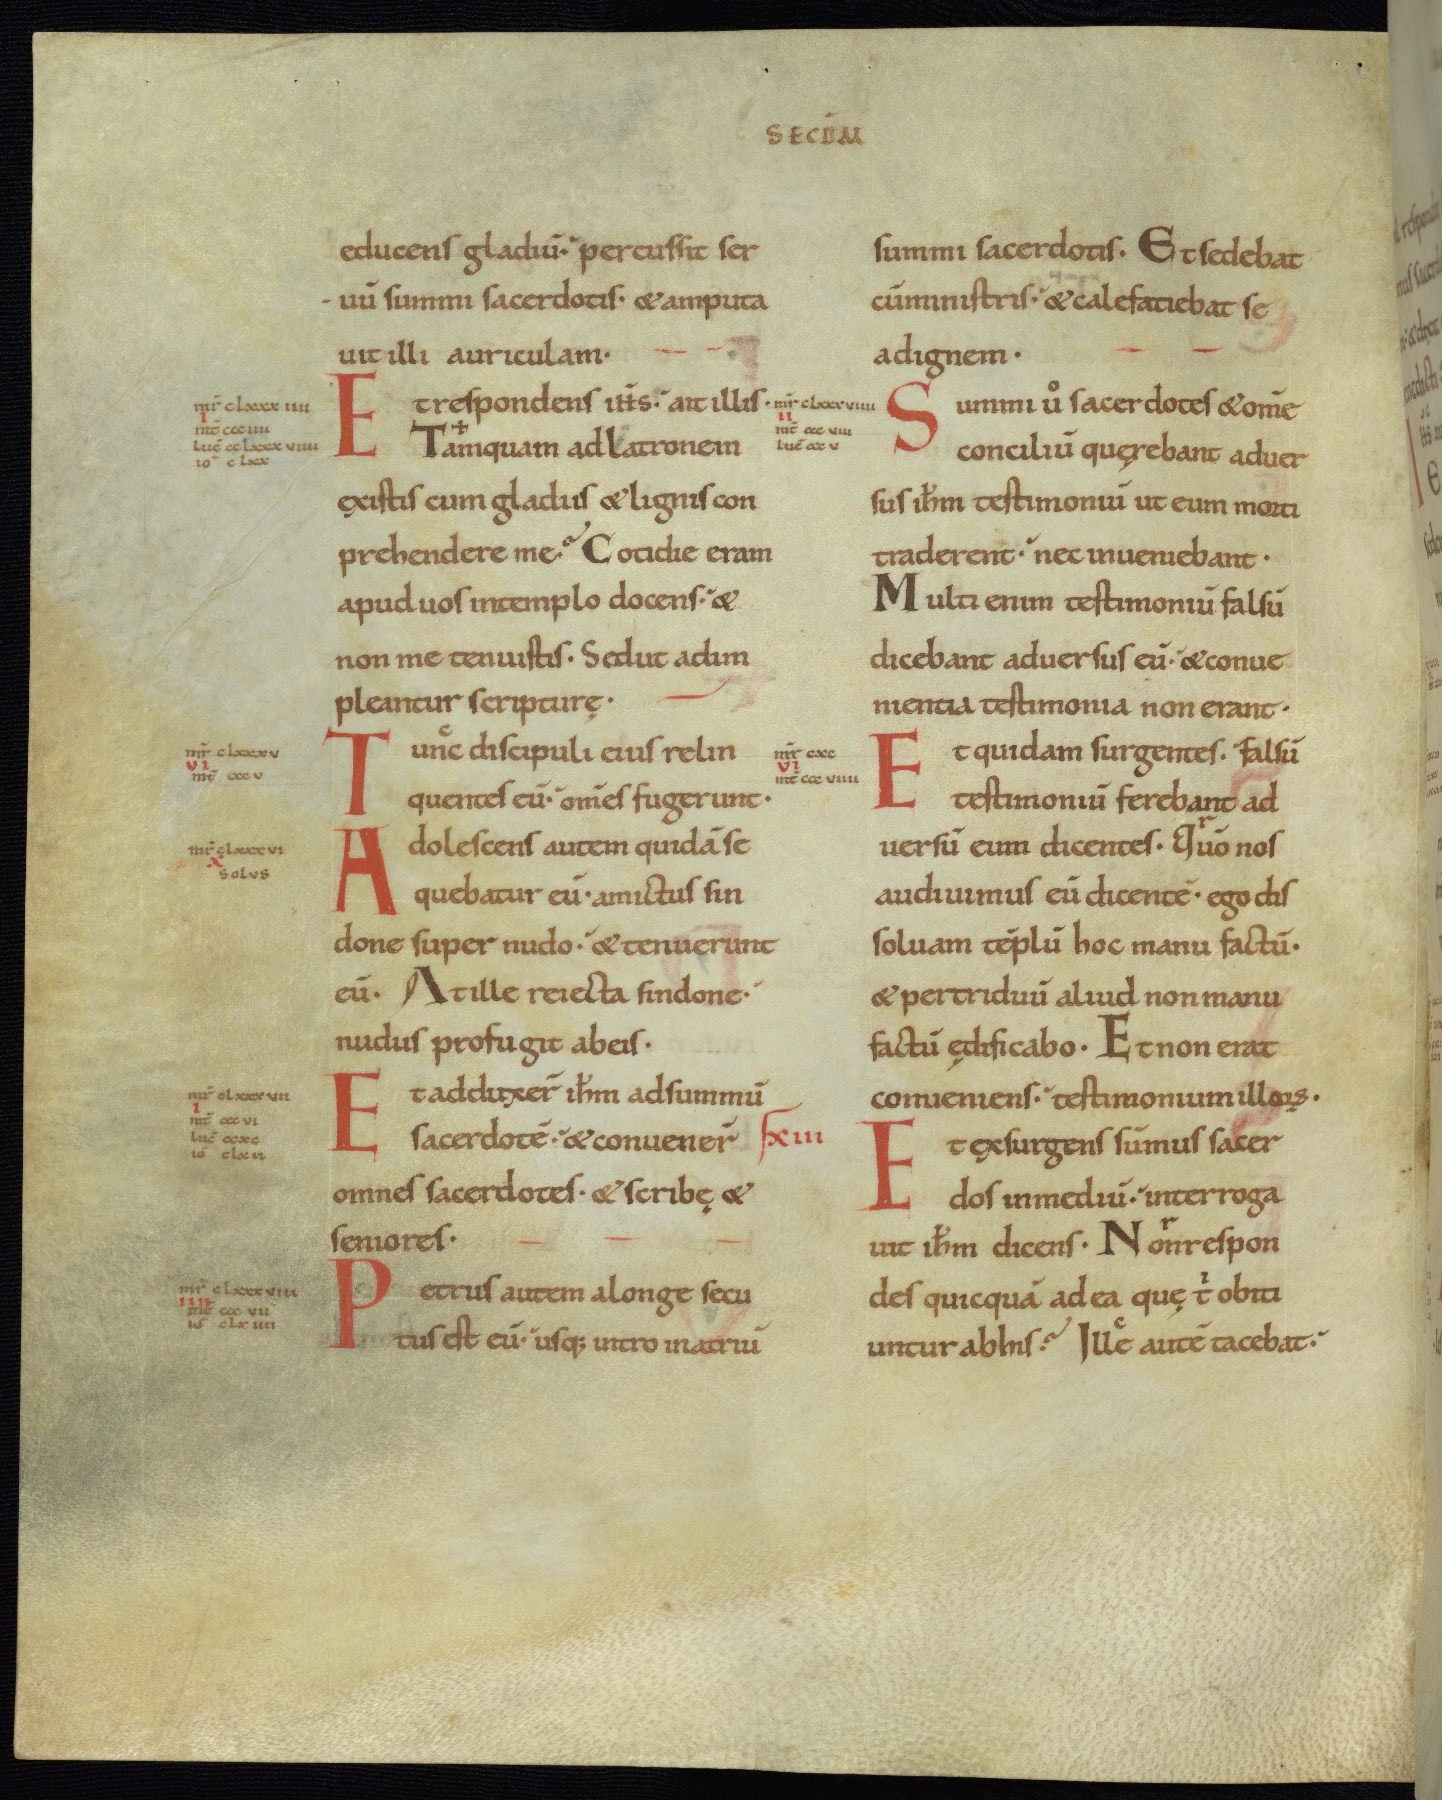 SECŪM
educens gladiū· percussit ser
uū summi sacerdotis· & amputa
uit illi auriculam·
mr̄ clxxxiiii
I
mt̄ ccciiii
luc̄ cclxxxviiii
io clxx
Et respondens ih̄s· ait illis·
Tamquam ad latronem
ęxistis cum gladiis & lignis con
prehendere me· Cotidie eram
apud uos in templo docens· &
non me tenuistis· Sed ut adim
pleantur scripturę·
mr̄ clxxxv
VI
mt̄ cccv
Tunc discipuli eius relin
quentes eū· om̄es fugerunt·
mr̄ clxxxvi
X
SOLVS
Adolescens autem quidā se
quebatur eū· amictus sin
done super nudo· & tenuerunt
eū· At ille reiecta sindone·
nudus profugit ab eis·
mr̄ clxxxvii
I
mt̄ cccvi
luc̄ ccxc
Et adduxer̄ ih̄m ad summū
sacerdotē· & conuener̄ xiii
omnes sacerdotes· & scribę &
seniores·
mr̄ clxxxviii
IIII
mt̄ cccvii
io clxiiii
Petrus autem a longe secu
tus est eū· usq; intro in atriū
summi sacerdotis· Et sedebat
cū ministris· & calefatiebat se
ad ignem·
mr̄ clxxxviiii
II
mt̄ cccviii
luc̄ cccv
Summi uº sacerdotes & om̄e
conciliū quęrebant aduer
sus ih̄m testimoniū ut eum morti
traderent· nec inueniebant·
Multi enim testimoniū falsū
dicebant aduersus eū· & conue
nientia testimonia non erant·
mr̄ cxc
VI
mt̄ cccviiii
Et quidam surgentes· falsū
testimoniū ferebant ad
uersū eum dicentes· Qūo nos
audiuimus eū dicentē· ego dis
soluam tēplū hoc manu factū·
& per triduū aliud non manu
factū ędificabo· Et non erat
conueniens· testimonium illoꝝ·
Et ęxsurgens sūmus sacer
dos in mediū· interroga
uit ih̄m dicens· Non respon
des quicquā ad ea quę t̄ obiti
untur ab his· Ille autē tacebat·